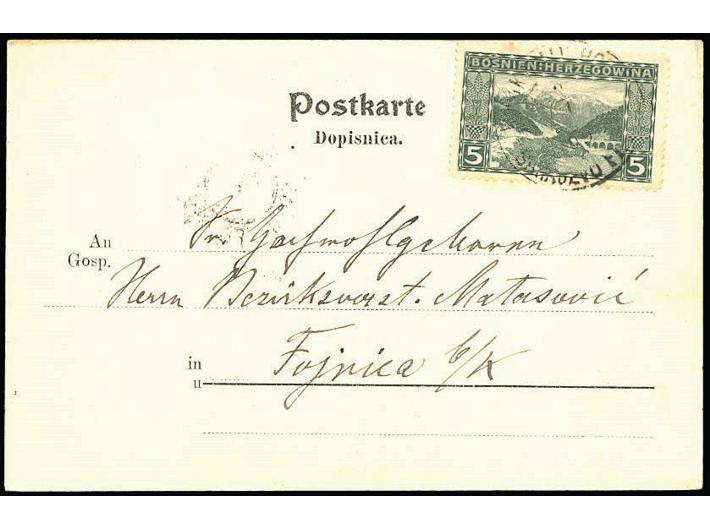 BOSNIEN-HERZEGOWINA
5 5
Postkarte
Dopisnica.
An Sr. Hochwohlgeboren
Gosp. Herrn Bezirksvorst. Matasović
in Fojnica b/K
u